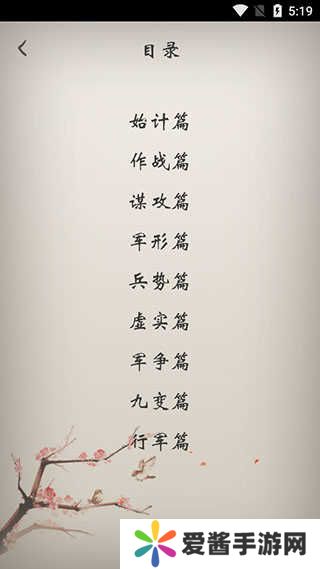 5:19
目录
始计篇
作战篇
谋攻篇
军形篇
兵势篇
虚实篇
军争篇
九变篇
行军篇
爱酱手游网